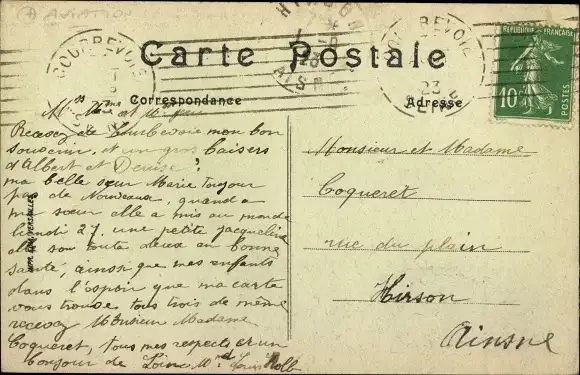 AVIATION
COURBEVOIE
HIRSON
AISNE
COURBEVOIE
23
SEINE
REPUBLIQUE FRANÇAISE
10c
POSTES
Carte Postale
Correspondance
Adresse
Mme et
Recevez de Courbevoie mon bon
souvenir et un gros baisers
d'Albert et Denise
ma belle sœur Marie toujour
pas de Nouveaux, quand a
ma sœur elle a mis au monde
lundi 27 une petite jacqueline
elle son toute deux en bonne
santé, ainsi que mes enfants
dans l'espoir que ma carte
vous trouve tous trois de même
recevez Monsieur Madame
Coqueret, tous mes respects et un
bonjour de Loin
Monsieur et Madame
Coqueret
rue du plain
Hirson
Ainsne